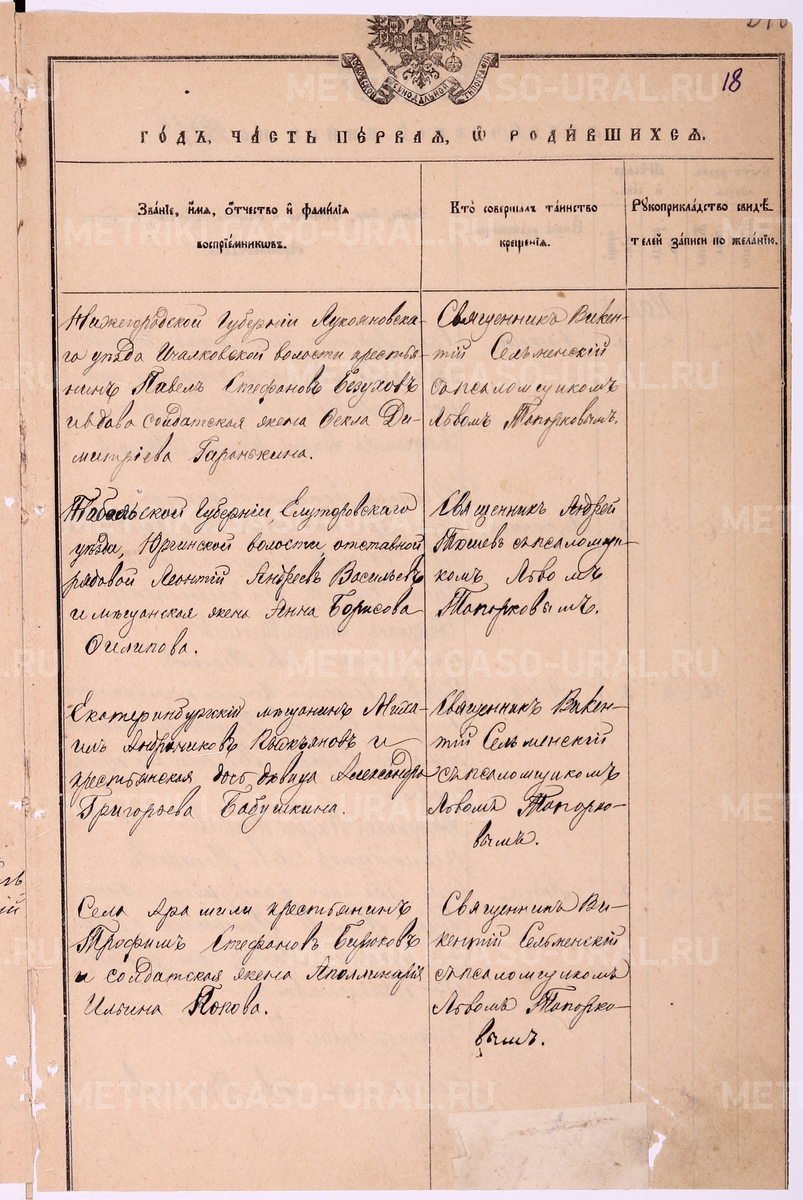 18
МОСКОВСКОЙ СѴНОДАЛЬНОЙ ТѴПОГРАФІИ
ГОДЪ, ЧАСТЬ ПЕРВАЯ, Ѡ РОДИВШИХСЯ.
Званіе, имя, отчество и фамилія
воспріемниковъ.
Кто совершалъ таинство
крещенія.
Рукоприкладство свидѣ-
телей записи по желанію.
Нижегородской Губерніи Лукояновска-
го уѣзда Ичалковской волости крестья-
нинъ Павелъ Стефановъ Безуховъ
и вдова солдатская жена Ѳекла Ди-
митріева Гаранькина.
Священникъ Викен-
тій Сельменскій
съ псаломщикомъ
Львомъ Топорковымъ.
Тобольской Губерніи, Елуторовскаго
уѣзда, Юргинской волости отставной
рядовой Леонтій Андреевъ Васильевъ
и мѣщанская жена Анна Борисова
Филипова.
Священникъ Андрей
съ псаломщи-
комъ Львомъ
Топорковымъ.
Екатеринбургскій мѣщанинъ Миха-
илъ Андрониковъ и
крестьянская дочь дѣвица Александра
Григорьева Бабушкина.
Священникъ Викен-
тій Сельменскій
съ псаломщикомъ
Львомъ Топорко-
вымъ.
Села Арамили крестьянинъ
Трофимъ Стефановъ Бирюковъ
и солдатская жена Аполлинарія
Ильина Попова.
Священникъ Ви-
кентій Сельменскій
съ псаломщикомъ
Львомъ Топорко-
вымъ.
METRIKI.GASO-URAL.RU